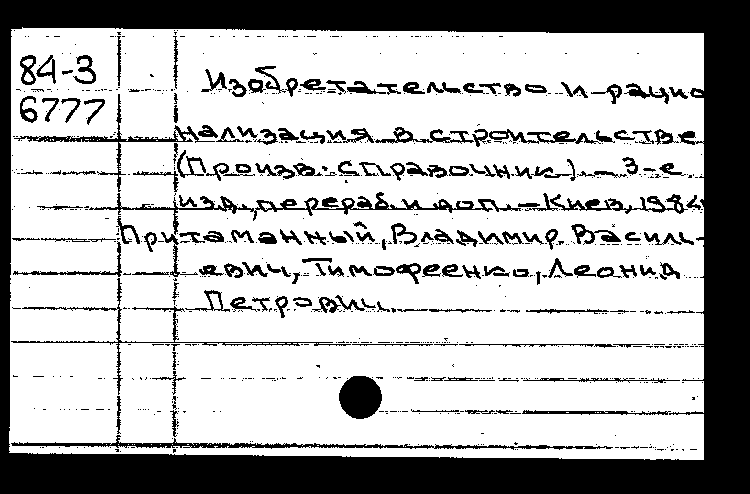 84-3
6777
Изобретательство и рацио
нализация в строительстве
(Произв. справочник). – 3-е
изд., перераб. и доп. – Киев, 1984
Притаманный, Владимир Василь-
евич, Тимофеенко, Леонид
Петрович.